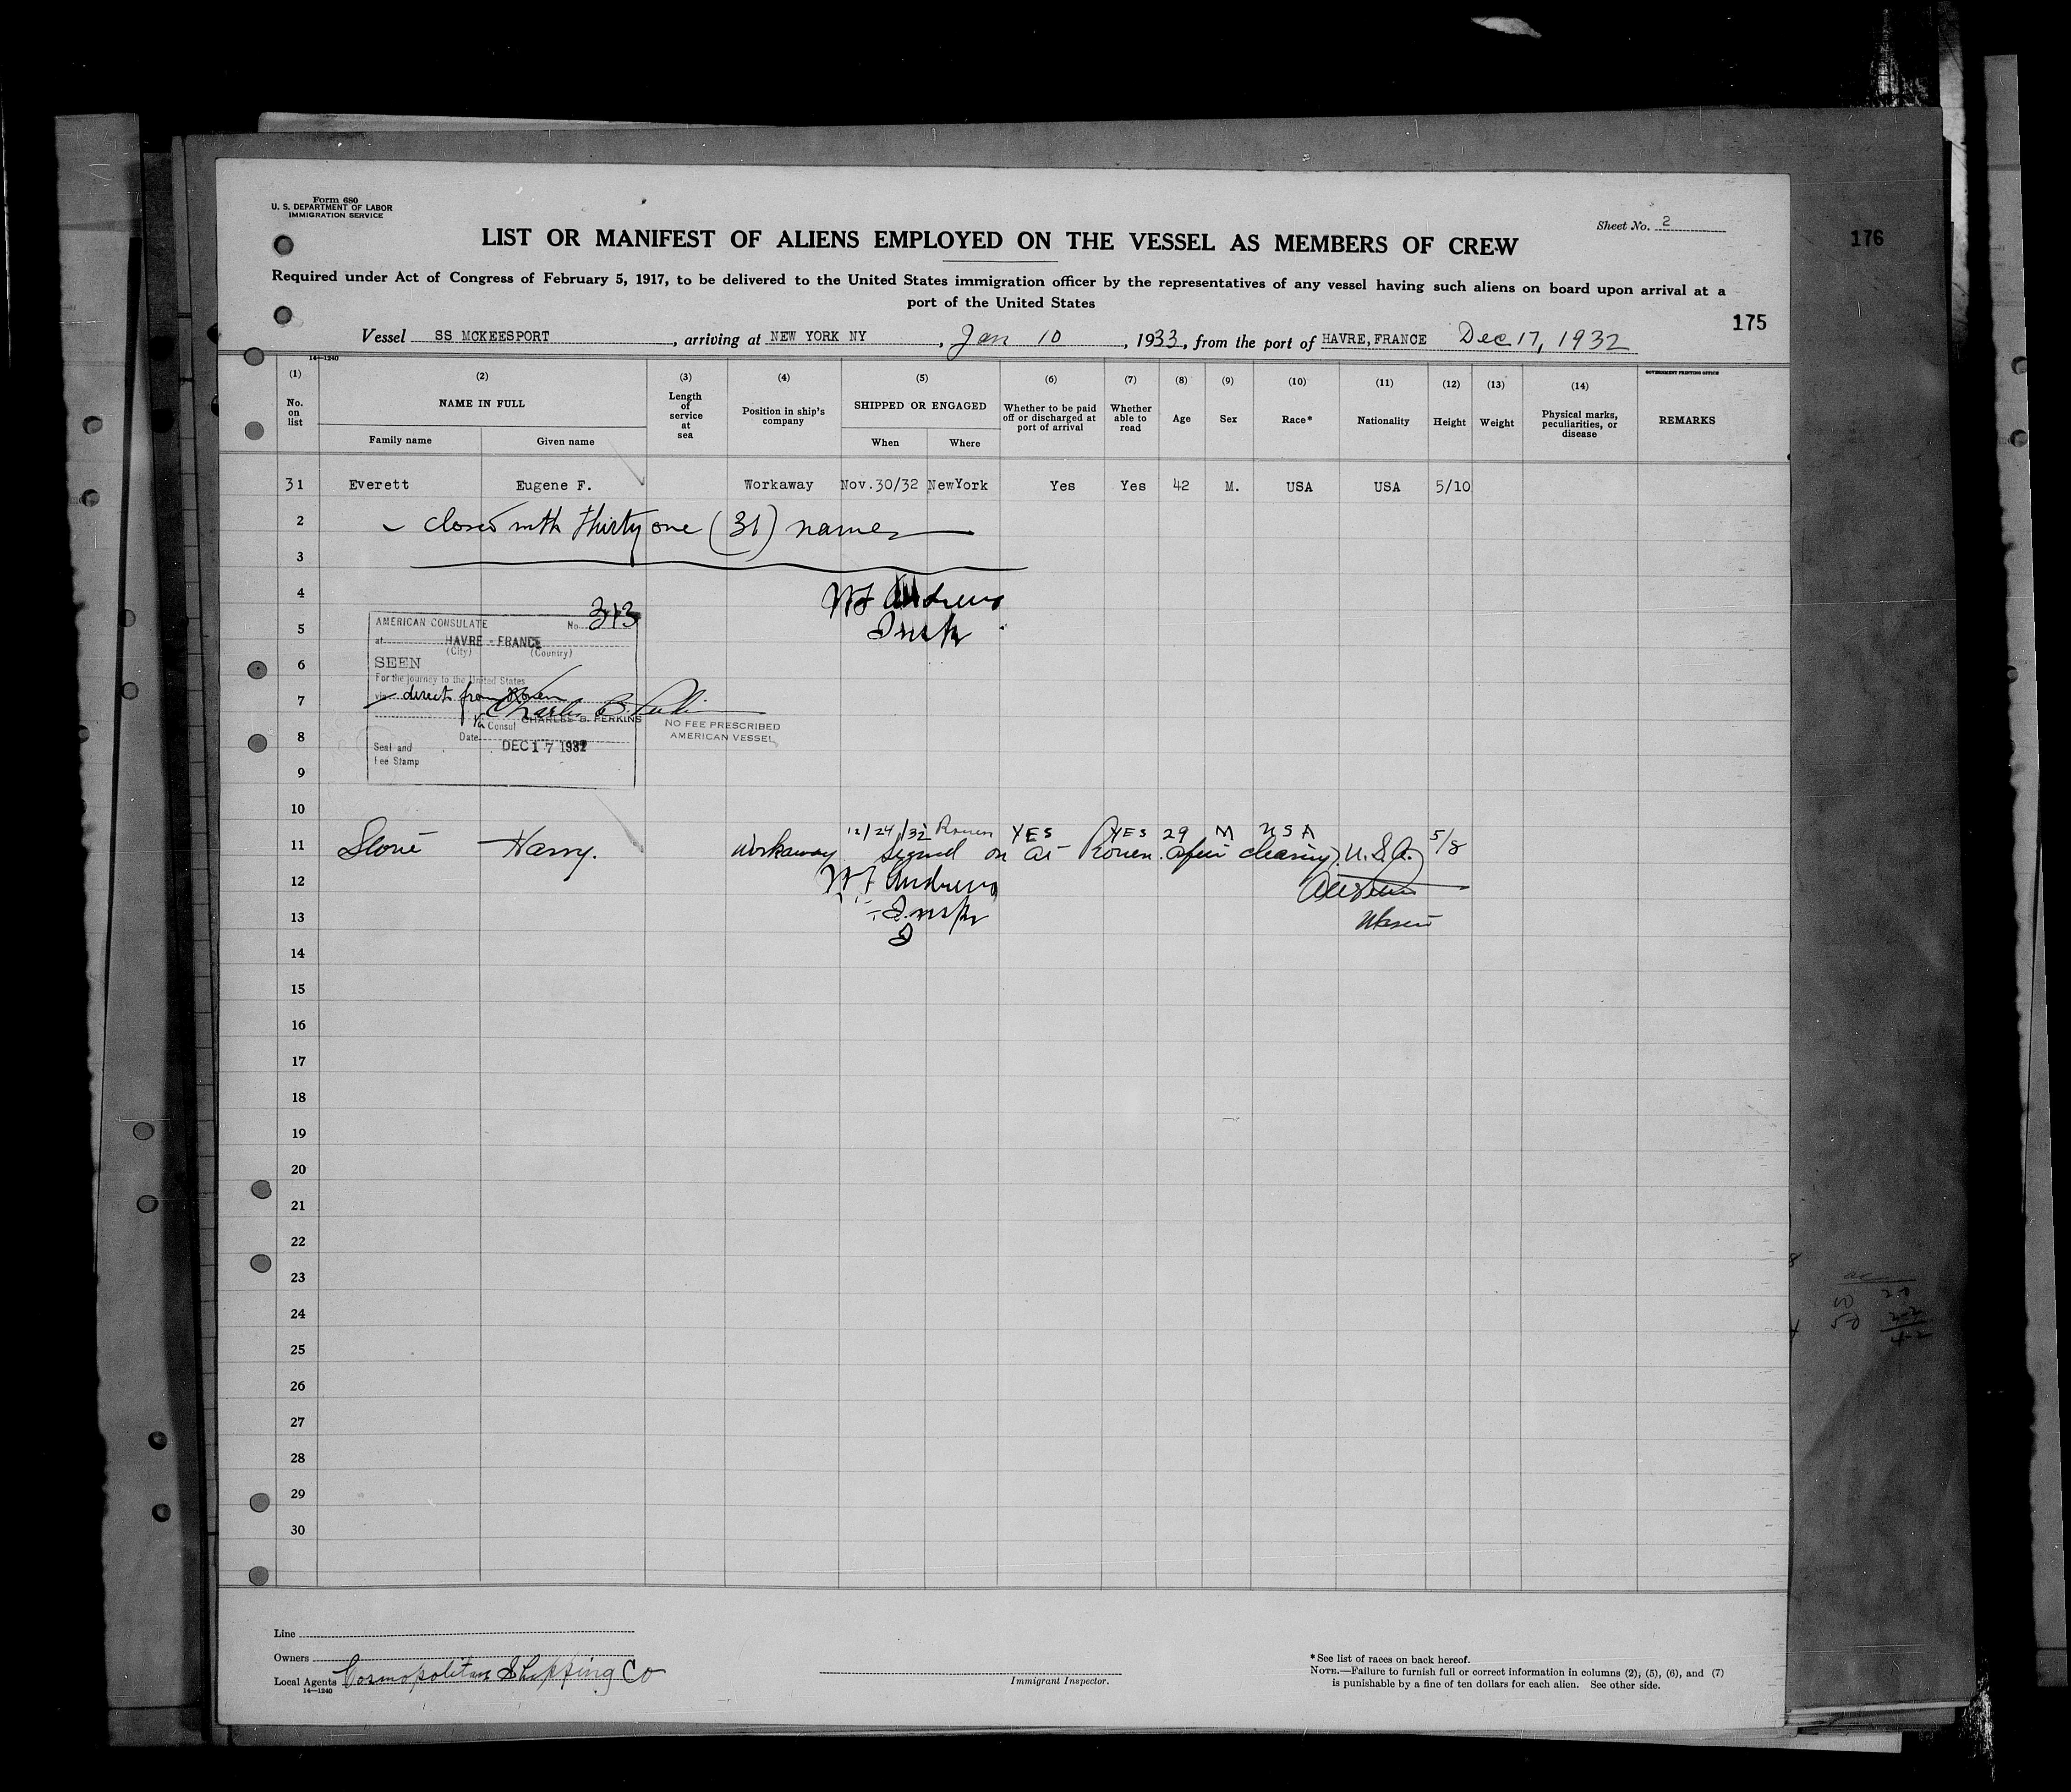 Form 680
U. S. DEPARTMENT OF LABOR
IMMIGRATION SERVICE
Sheet No. 2
176
LIST OR MANIFEST OF ALIENS EMPLOYED ON THE VESSEL AS MEMBERS OF CREW
Required under Act of Congress of February 5, 1917, to be delivered to the United States immigration officer by the representatives of any vessel having such aliens on board upon arrival at a
port of the United States
175
Vessel SS MCKEESPORT, arriving at NEW YORK NY, Jan 10, 1933, from the port of HAVRE, FRANCE Dec 17, 1932
14—1240
GOVERNMENT PRINTING OFFICE
(1) (2) (3) (4) (5) (6) (7) (8) (9) (10) (11) (12) (13) (14)
No. on list NAME IN FULL Length of service at sea Position in ship's company SHIPPED OR ENGAGED Whether to be paid off or discharged at port of arrival Whether able to read Age Sex Race* Nationality Height Weight Physical marks, peculiarities, or disease REMARKS
Family name Given name When Where
31 Everett Eugene F. Workaway Nov.30/32 NewYork Yes Yes 42 M. USA USA 5/10
2 closed with thirty one (31) names
3
4 W F Andrews
5 Insp
AMERICAN CONSULATE No. 313
at HAVRE - FRANCE
(City) (Country)
6 SEEN
For the journey to the United States
7 via direct from Rouen
Charles B. Perkins
Consul CHARLES B. PERKINS
NO FEE PRESCRIBED
AMERICAN VESSEL
8 Date DEC 17 1932
Seal and
Fee Stamp
9
10
12/24/32 Rouen YES YES 29 M USA
11 Harry. Workaway signed on at Rouen after clearing. U.S.A. 5/8
12 W F Andrews
13 Insp
14
15
16
17
18
19
20
21
22
23
24
25
26
27
28
29
30
Line
Owners
Local Agents Cosmopolitan Shipping Co
14—1240
Immigrant Inspector.
*See list of races on back hereof.
NOTE.—Failure to furnish full or correct information in columns (2), (5), (6), and (7)
is punishable by a fine of ten dollars for each alien. See other side.